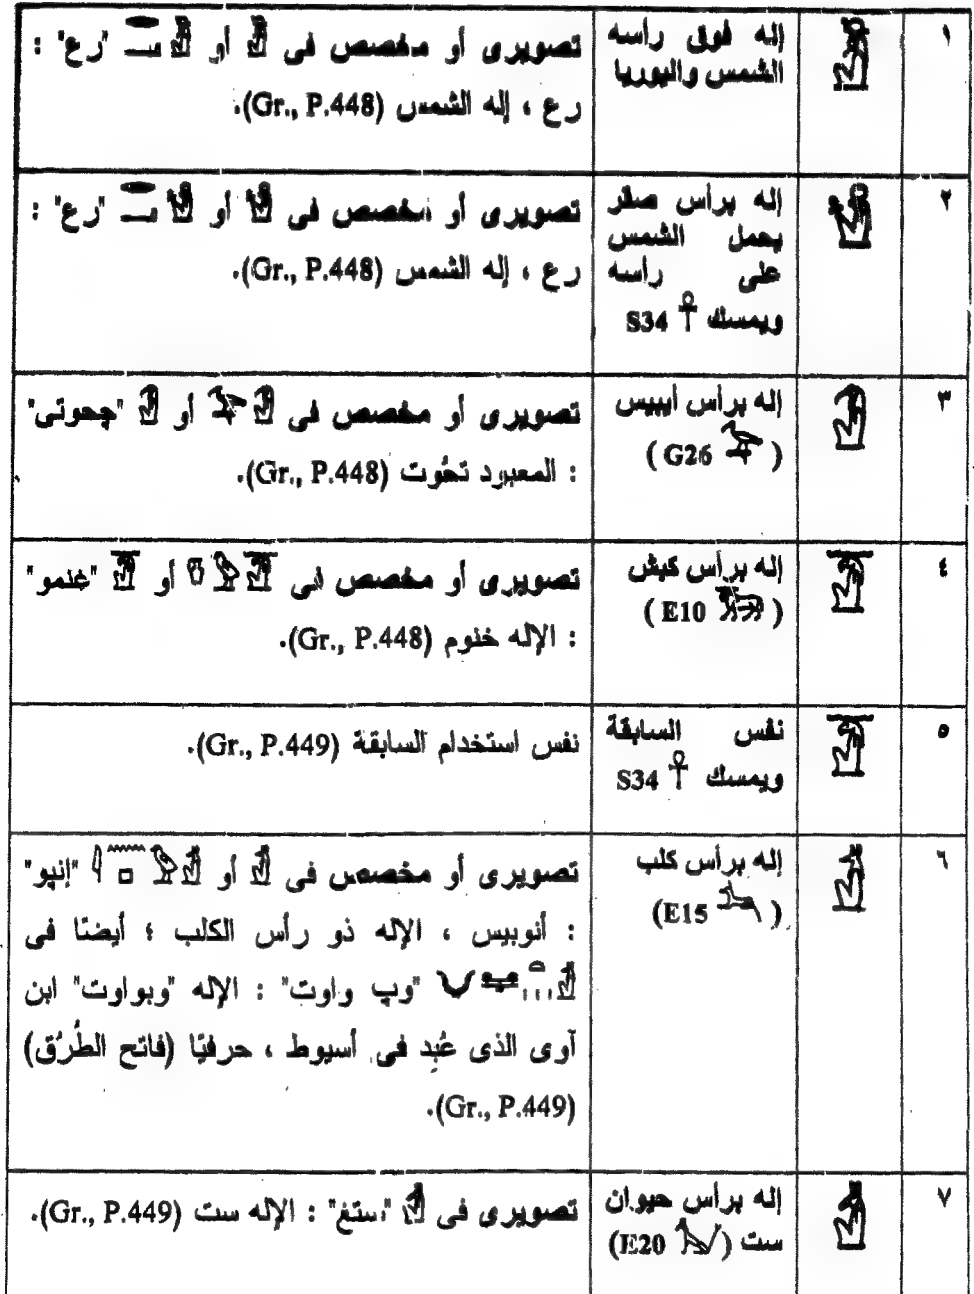 ١
إله فوق رأسه
الشمس واليوريا
تصويرى أو مخصص فى أو "رع" :
رع ، إله الشمس (Gr., P.448).
٢
إله برأس صقر
يحمل الشمس
على رأسه
ويمسك S34
تصويرى أو مخصص فى أو "رع" :
رع ، إله الشمس (Gr., P.448).
٣
إله برأس أيبيس
( G26 )
تصويرى أو مخصص فى أو "چحوتى"
: المعبود تحُوت (Gr., P.448).
٤
إله برأس كبش
( E10 )
تصويرى أو مخصص فى أو "غنمو"
: الإله خنوم (Gr., P.448).
٥
نفس السابقة
ويمسك S34
نفس استخدام السابقة (Gr., P.449).
٦
إله برأس كلب
( E15)
تصويرى أو مخصص فى أو "إنپو"
: أنوبيس ، الإله ذو رأس الكلب ؛ أيضًا فى
"وپ واوت" : الإله "وبواوت" ابن
آوى الذى عُبِد فى أسيوط ، حرفيًا (فاتح الطُرُق)
(Gr., P.449).
٧
إله برأس حيوان
ست ( E20)
تصويرى فى "ستغ" : الإله ست (Gr., P.449).